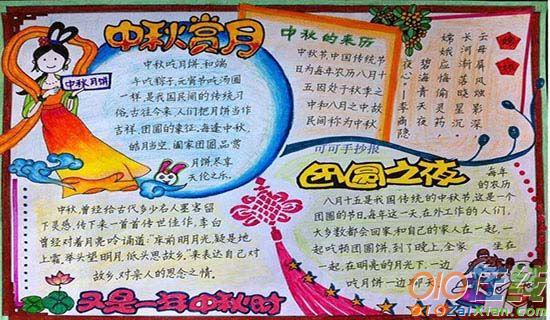 中秋月饼
中秋赏月
中秋吃月饼,和端
午吃粽子、元宵节吃汤圆
一样,是我国民间的传统习
俗。古往今来,人们把月饼当作
吉祥、团圆的象征,每逢中秋,
皓月当空,阖家团圆,品赏
月饼尽享
天伦之乐。
中秋的来历
中秋节,中国传统节
日为每年农历八月十
五因处于秋季之
中和八月之中故
民间称为中秋
嫦娥
云母屏风烛影深
长河渐落晓星沉
嫦娥应悔偷灵药
碧海青天夜
夜心—李商隐
可可手抄报
团圆之夜
每年
的农历
八月十五是我国传统的中秋节,这是一个
团圆的节日,每年这一天,在外工作的人们,
大多数都会回家,和自己的家人在一起,一
起吃顿团圆饼,到了晚上,全家
坐在一
起,在明亮的月光下,一边
吃月饼一边聊天
中秋,曾经给古代多少名人墨客留
下灵感,传下来一首首传世佳作。李白
曾经对着月亮吟诵道:"床前明月光,疑是地
上霜,举头望明月,低头思故乡。"来表达自己对
故乡,对亲人的思念之情。
又是一年中秋时
910在线
910zaixian.com